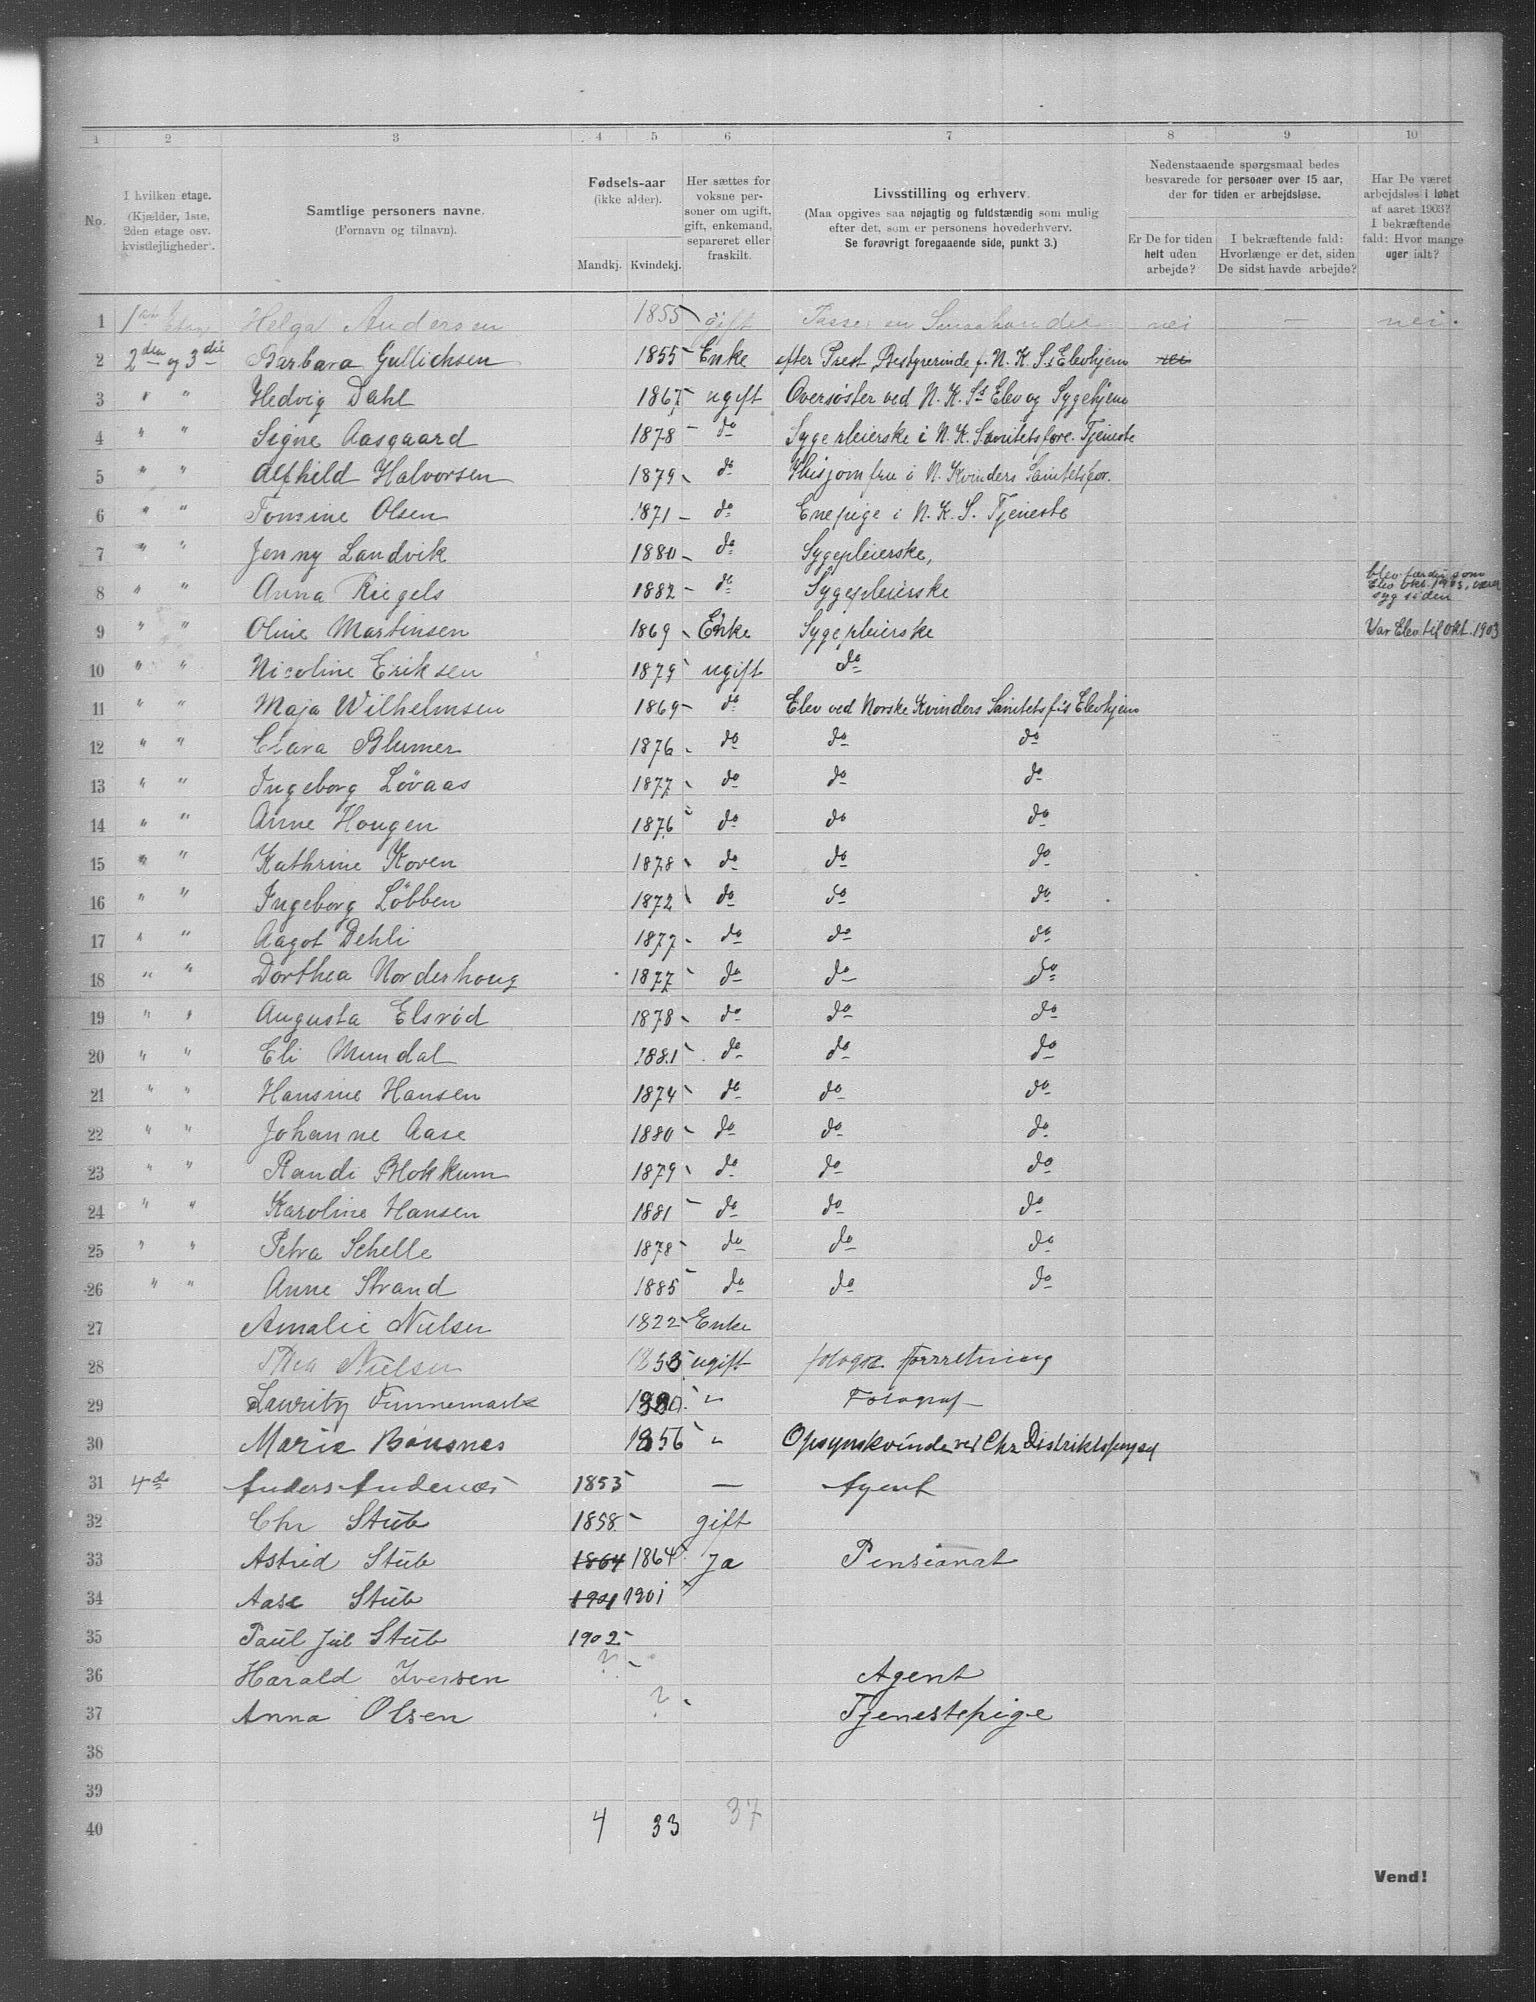 1 2 3 4 5 6 7 8 9 10
No.
I hvilken etage.
(Kjælder, 1ste,
2den etage osv.
kvistlejligheder).
Samtlige personers navne.
(Fornavn og tilnavn).
Fødsels-aar
(ikke alder).
Mandkj. Kvindekj.
Her sættes for
voksne per-
soner om ugift,
gift, enkemand,
separeret eller
fraskilt.
Livsstilling og erhverv.
(Maa opgives saa nøjagtig og fuldstændig som mulig
efter det, som er personens hovederhverv.
Se forøvrigt foregaaende side, punkt 3.)
Nedenstaaende spørgsmaal bedes
besvarede for personer over 15 aar,
der for tiden er arbejdsløse.
Er De for tiden
helt uden
arbejde?
I bekræftende fald:
Hvorlænge er det, siden
De sidst havde arbejde?
Har De været
arbejdsløs i løbet
af aaret 1903?
I bekræftende
fald: Hvor mange
uger ialt?
1 Helga Andersen 1855 gift Passer en Smaahandel nei — nei.
2 2den og 3die Barbara Gullichsen 1855 Enke efter Prest, Bestyrerinde f. N. K. Ss Elevhjem nei
3 " " Hedvig Dahl 1867 ugift Oversøster ved N. K. Ss Elev og Sygehjem
4 " " Signe Aasgaard 1878 do Sygepleierske i N. K. Sanitetsfore. Tjeneste
5 " " Alfhild Halvorsen 1879 do Husjomfru i N. Kvinders Sanitetsfor.
6 " " Tomine Olsen 1871 do Enepige i N. K. S. Tjeneste
7 " " Jenny Landvik 1880 do Sygepleierske,
8 " " Anna Riegels 1882 do Sygepleierske blev færdig som Elev Okt. 1903, været syg siden
9 " " Oline Martinsen 1869 Enke Sygepleierske Var Elev til Okt. 1903
10 " " Nicoline Eriksen 1879 ugift do
11 " " Maja Wilhelmsen 1869 do Elev ved Norske Kvinders Sanitetsf's Elevhjem
12 " " Clara Blumer 1876 do do do
13 " " Ingeborg Løvaas 1877 do do do
14 " " Anne Hougen 1876 do do do
15 " " Kathrine Koven 1878 do do do
16 " " Ingeborg Løbben 1872 do do do
17 " " Aagot Dehli 1877 do do do
18 " " Dorthea Norderhoug 1877 do do do
19 " " Augusta Elsrød 1878 do do do
20 " " Eli Mundal 1881 do do do
21 " " Hansine Hansen 1874 do do do
22 " " Johanne Aase 1880 do do do
23 " " Randi Blokkum 1879 do do do
24 " " Karoline Hansen 1881 do do do
25 " " Petra Schelle 1878 do do do
26 " " Anne Strand 1885 do do do
27 Amalie Nielsen 1822 Enke
28 Thea Nielsen 1853 ugift fotogr. forretning
29 Lauritz Finnemark "  Fotograf
30 Marie Bonsnes 1856 " Opsynskvinde ved Chr Distriktsfængsel
31 4de Anders Andenæs 1853 — Agent
32 Chr Stub 1858 gift
33 Astrid Stub 1864 1864 Ja Pensionat
34 Aase Stub 1901 1901
35 Paul Jul Stub 1902
36 Harald Iversen ? Agent
37 Anna Olsen ? Tjenestepige
38
39
40 4 33 37
Vend!